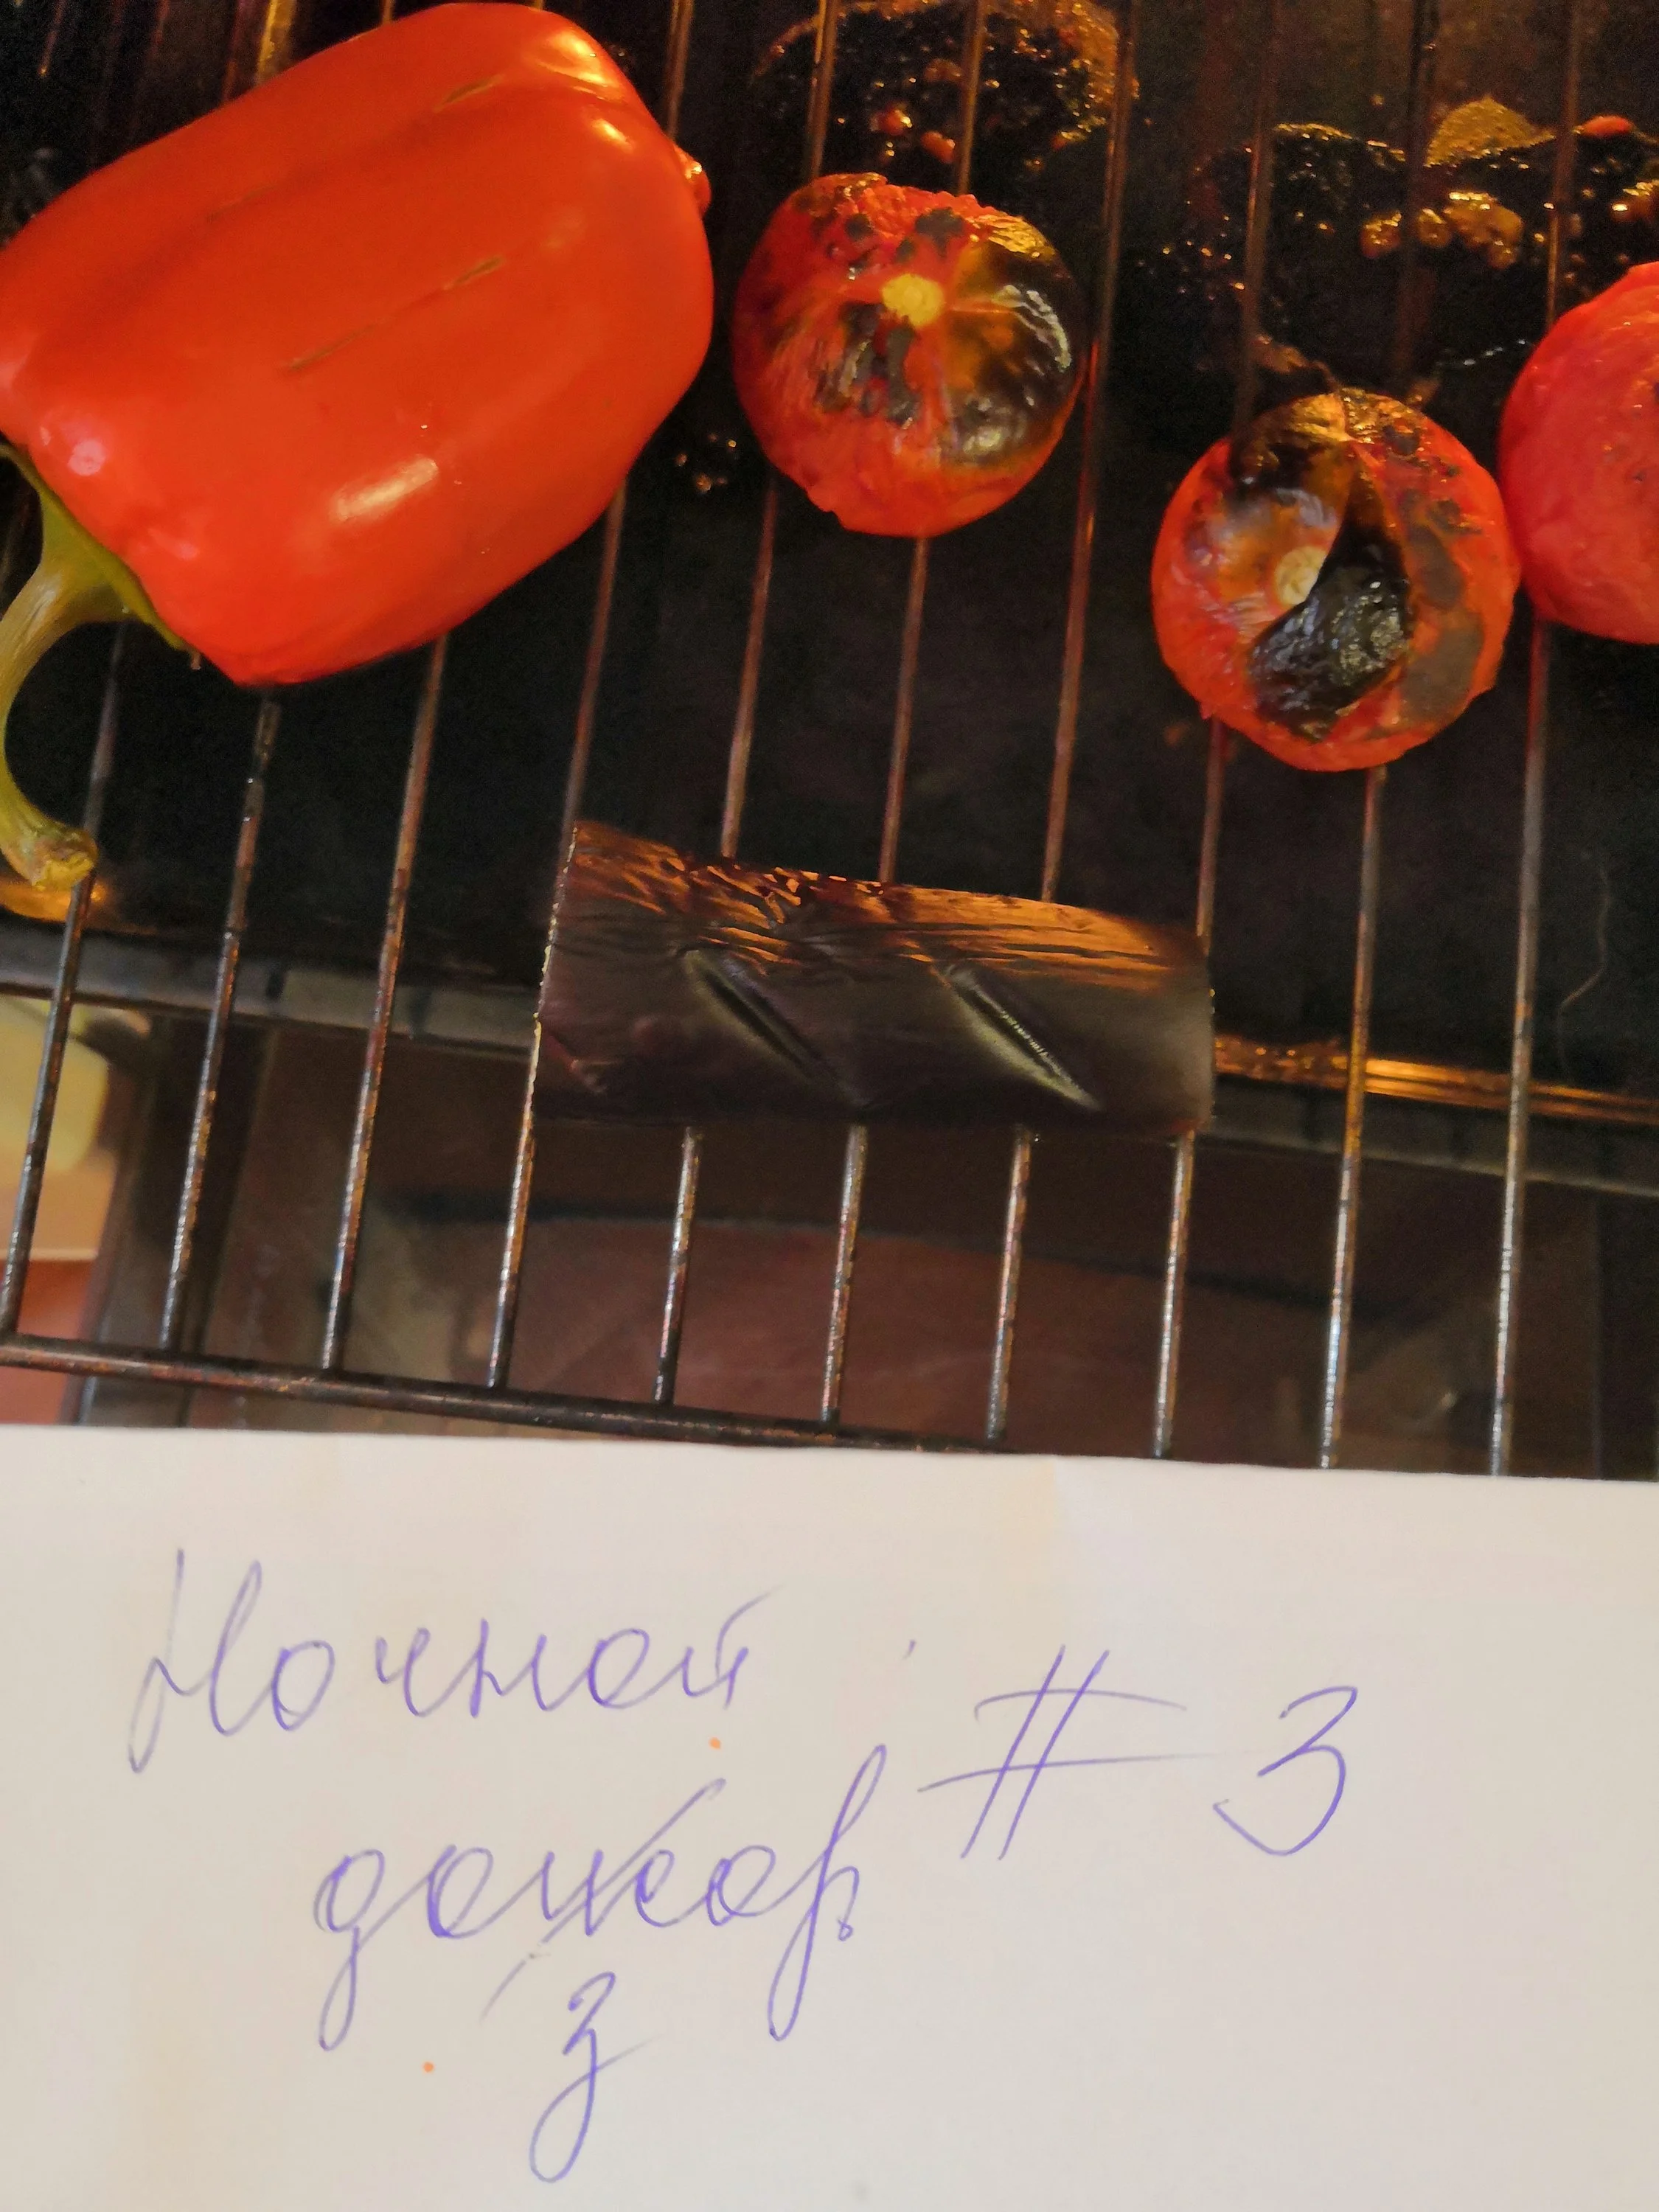 Ночной
дожор # 3
з